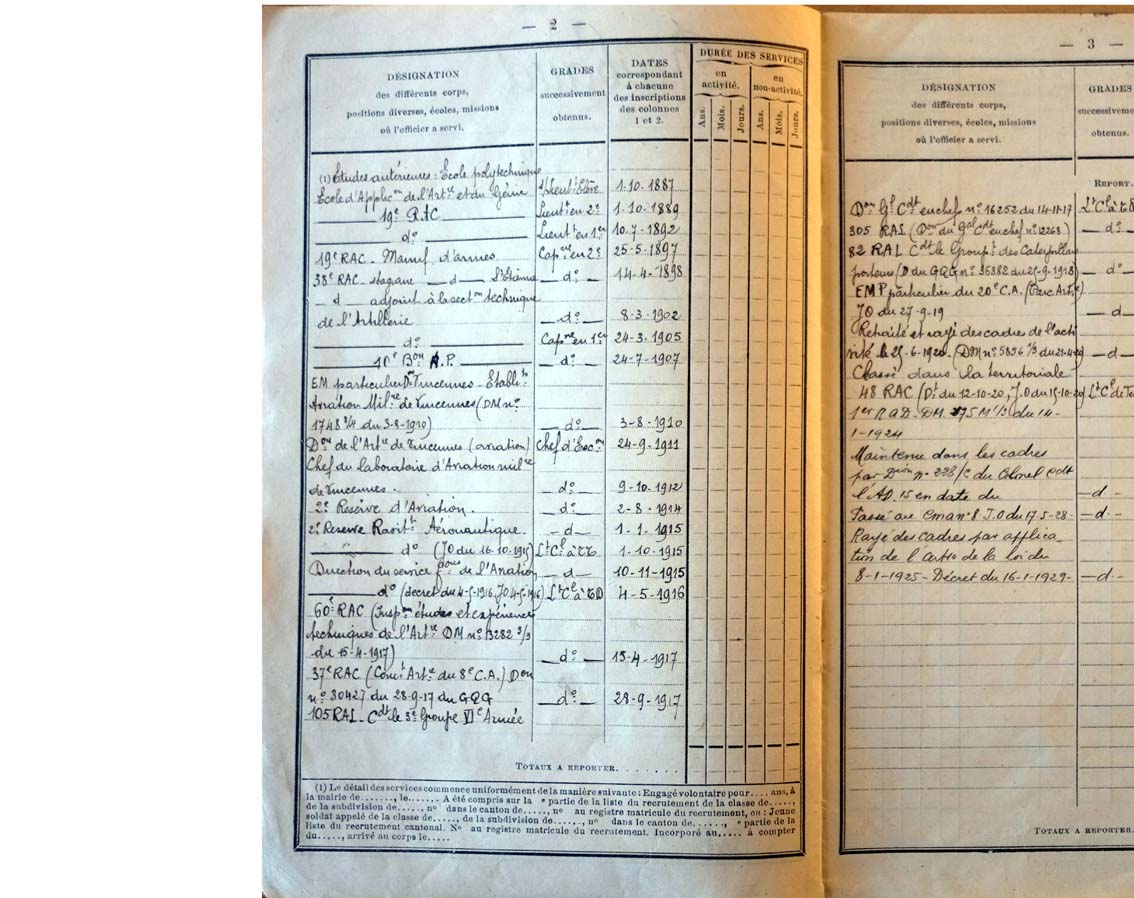 — 2 —
DÉSIGNATION
des différents corps,
positions diverses, écoles, missions
où l'officier a servi.
GRADES
successivement
obtenus.
DATES
correspondant
à chacune
des inscriptions
des colonnes
1 et 2.
DURÉE DES SERVICES
en activité.
en non-activité.
Ans. Mois. Jours. Ans. Mois. Jours.
(1) Etudes antérieures : Ecole polytechnique
Ecole d'Applic^on de l'Art^ie et du Génie s/Lieut^t Elève 1-10-1887
19^e RAC Lieut^t en 2^e 1-10-1889
d° Lieut^t en 1^er 10-7-1892
19^e RAC - Manuf. d'armes Cap^ne en 2^e 25-5-1897
38^e RAC - stagiaire — d — S^t Etienne — d° — 14-4-1898
— d — adjoint à la sect^on technique
de l'Artillerie — d° — 8-3-1902
d° Cap^ne en 1^er 24-3-1905
10^e B^on A.P. — d° — 24-7-1907
EM particulier D^on Vincennes - Etabl^t
Aviation Mil^re de Vincennes (DM n°
1748 3/4 du 3-8-1910) — d° — 3-8-1910
D^on de l'Art^ie de Vincennes (aviation) Chef d'Esc^on 24-9-1911
Chef du laboratoire d'Aviation mil^re
de Vincennes — d° — 9-10-1912
2^e Réserve d'Aviation. — d° — 2-8-1914
2^e Reserve Ravit^t Aéronautique. — d — 1-1-1915
d° (JO du 16-10-1915) L^t C^l à TT. 1-10-1915
Direction du service de l'Aviation — d — 10-11-1915
d° (décret du 4-5-1916, JO 4-5-1916) L^t C^l à TD 4-5-1916
60^e RAC (Insp^on études et expérience
techniques de l'Art^ie DM n° 13282 3/3
du 15-4-1917) — d° — 15-4-1917
37^e RAC (Com^t Art^ie du 8^e C.A.) D^on
n° 30427 du 28-9-17 du GQG — d° — 28-9-1917
105 RAL - C^dt le 3^e Groupe VI^e Armée
TOTAUX A REPORTER. . . . . . . .
(1) Le détail des services commence uniformément de la manière suivante : Engagé volontaire pour.... ans, à
la mairie de......., le....... A été compris sur la ^e partie de la liste du recrutement de la classe de.....,
de la subdivision de....., n° dans le canton de....., n° au registre matricule du recrutement, ou : Jeune
soldat appelé de la classe de....., de la subdivision de......, n° dans le canton de......, ^e partie de la
liste du recrutement cantonal. N° au registre matricule du recrutement. Incorporé au..... à compter
du....., arrivé au corps le.....
— 3 —
DÉSIGNATION
des différents corps,
positions diverses, écoles, missions
où l'officier a servi.
GRADES
successivement
obtenus.
REPORT.
D^on G^l C^dt en chef n° 16252 du 14-11-17 L^t C^l à T.D
305 RAL (D^on du G^al C^dt en chef n° 12268) — d° —
82 RAL C^dt le Group^t des Caterpillars
porteurs (D du GQG n° 36382 du 25-9-1918) — d°
EMP particulier du 20^e C.A. (Parc Art^ie)
JO du 27-9-19 — d —
Retraité et rayé des cadres de l'acti
vité le 25-6-1920. (DM n° 5856 1/3 du 21-4-20) — d —
Classé dans la territoriale
48 RAC (D^t du 12-10-20, J.O du 15-10-20) L^t C^l de
1^er R.A.D. DM 975 M 1/3 du 14-
1-1924
Maintenu dans les cadres
par D^ion n° 228/C du Colonel Cdt
l'AD. 15 en date du — d -
Passé au Cman°8 J.O du 17-5-28 - — d. -
Rayé des cadres par applica_
tion de l'art^e de la loi du
8-1-1925 - Décret du 16-1-1929 - — d. —
TOTAUX A REPORTER.